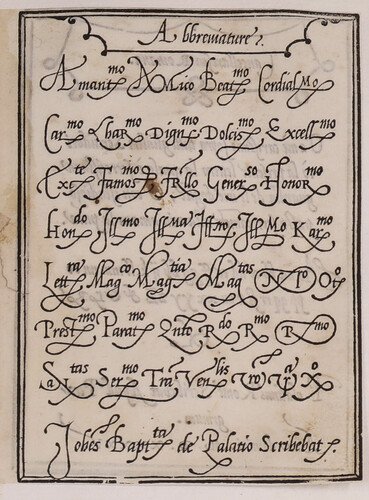 Abbreviature.
Amant.mo Amico Beat.mo Cordial.mo
Car.mo Char.mo Dign.mo Dolcis.mo Excell.mo
Ex.te Famos.mo Frllo Gener.so Honor.mo
Hon.do Ill.mo Ill.ma Ill.ro Ill.mo Kar.mo
Lett.ra Mag.co Mag.tia Mag.tas N.po Ott.o
Prest.mo Parat.mo Qnto R.do R.mo R.mo
San.tas Ser.mo Tra Ven.lis
Johes Bapt.ta de Palatio Scribebat.